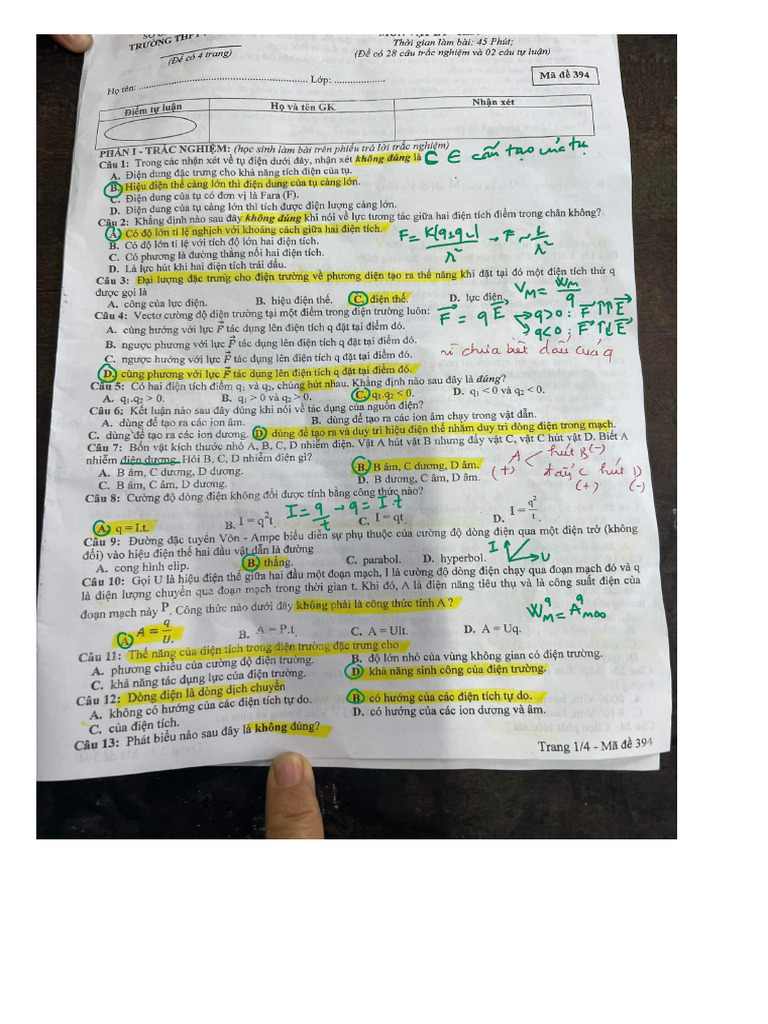 TRƯỜNG THPT
(Đề có 4 trang)
Thời gian làm bài: 45 Phút;
(Đề có 28 câu trắc nghiệm và 02 câu tự luận)
Họ tên: ............ Lớp: ............
Mã đề 394
Điểm tự luận Họ và tên GK Nhận xét
PHẦN I - TRẮC NGHIỆM: (học sinh làm bài trên phiếu trả lời trắc nghiệm)
Câu 1: Trong các nhận xét về tụ điện dưới đây, nhận xét không đúng là C ∈ cấu tạo của tụ
A. Điện dung đặc trưng cho khả năng tích điện của tụ.
B. Hiệu điện thế càng lớn thì điện dung của tụ càng lớn.
C. Điện dung của tụ có đơn vị là Fara (F).
D. Điện dung của tụ càng lớn thì tích được điện lượng càng lớn.
Câu 2: Khẳng định nào sau đây không đúng khi nói về lực tương tác giữa hai điện tích điểm trong chân không?
A. Có độ lớn tỉ lệ nghịch với khoảng cách giữa hai điện tích.
B. Có độ lớn tỉ lệ với tích độ lớn hai điện tích.
C. Có phương là đường thẳng nối hai điện tích.
D. Là lực hút khi hai điện tích trái dấu.
F = K|q1q2|/r² → F ~ 1/r²
Câu 3: Đại lượng đặc trưng cho điện trường về phương diện tạo ra thế năng khi đặt tại đó một điện tích thử q
được gọi là
A. công của lực điện. B. hiệu điện thế. C. điện thế. D. lực điện.
V_M = W_M/q
Câu 4: Vectơ cường độ điện trường tại một điểm trong điện trường luôn:
A. cùng hướng với lực F⃗ tác dụng lên điện tích q đặt tại điểm đó.
B. ngược phương với lực F⃗ tác dụng lên điện tích q đặt tại điểm đó.
C. ngược hướng với lực F⃗ tác dụng lên điện tích q đặt tại điểm đó.
D. cùng phương với lực F⃗ tác dụng lên điện tích q đặt tại điểm đó.
F⃗ = qE⃗ → q>0: F⃗ ↑↑ E⃗
→ q<0: F⃗ ↑↓ E⃗
vì chưa biết dấu của q
Câu 5: Có hai điện tích điểm q₁ và q₂, chúng hút nhau. Khẳng định nào sau đây là đúng?
A. q₁.q₂ > 0. B. q₁ > 0 và q₂ > 0. C. q₁.q₂ < 0. D. q₁ < 0 và q₂ < 0.
Câu 6: Kết luận nào sau đây đúng khi nói về tác dụng của nguồn điện?
A. dùng để tạo ra các ion âm. B. dùng để tạo ra các ion âm chạy trong vật dẫn.
C. dùng để tạo ra các ion dương. D. dùng để tạo ra và duy trì hiệu điện thế nhằm duy trì dòng điện trong mạch.
Câu 7: Bốn vật kích thước nhỏ A, B, C, D nhiễm điện. Vật A hút vật B nhưng đẩy vật C, vật C hút vật D. Biết A
nhiễm điện dương. Hỏi B, C, D nhiễm điện gì?
A. B âm, C dương, D dương. B. B âm, C dương, D âm.
C. B âm, C âm, D dương. D. B dương, C âm, D âm.
A hút B (-)
(+) đẩy C hút D
(+) (-)
Câu 8: Cường độ dòng điện không đổi được tính bằng công thức nào?
A. q = I.t. B. I = q²t. C. I = qt. D. I = q²/t.
I = q/t → q = I.t
Câu 9: Đường đặc tuyến Vôn - Ampe biểu diễn sự phụ thuộc của cường độ dòng điện qua một điện trở (không
đổi) vào hiệu điện thế hai đầu vật dẫn là đường
A. cong hình elip. B. thẳng. C. parabol. D. hyperbol.
I U
Câu 10: Gọi U là hiệu điện thế giữa hai đầu một đoạn mạch, I là cường độ dòng điện chạy qua đoạn mạch đó và q
là điện lượng chuyển qua đoạn mạch trong thời gian t. Khi đó, A là điện năng tiêu thụ và là công suất điện của
đoạn mạch này P. Công thức nào dưới đây không phải là công thức tính A ?
A. A = q/U. B. A = P.t. C. A = UIt. D. A = Uq.
W_M^q = A_M∞^q
Câu 11: Thế năng của điện tích trong điện trường đặc trưng cho
A. phương chiều của cường độ điện trường. B. độ lớn nhỏ của vùng không gian có điện trường.
C. khả năng tác dụng lực của điện trường. D. khả năng sinh công của điện trường.
Câu 12: Dòng điện là dòng dịch chuyển
A. không có hướng của các điện tích tự do. B. có hướng của các điện tích tự do.
C. của điện tích. D. có hướng của các ion dương và âm.
Câu 13: Phát biểu nào sau đây là không đúng?
Trang 1/4 - Mã đề 394